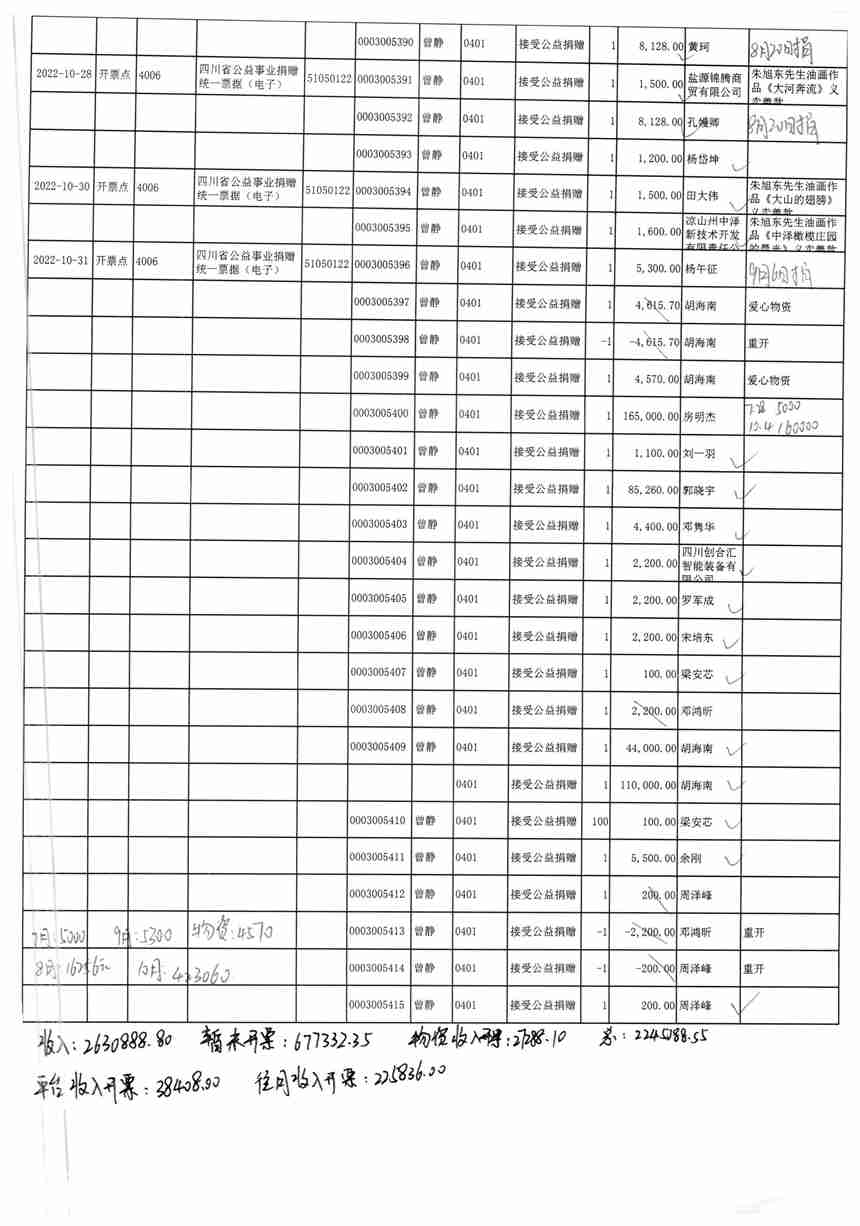 0003005390 曾静 0401 接受公益捐赠 1 8,128.00 黄珂 8月20日捐
2022-10-28 开票点 4006 四川省公益事业捐赠统一票据（电子） 51050122 0003005391 曾静 0401 接受公益捐赠 1 1,500.00 盐源锦腾商贸有限公司 朱旭东先生油画作品《大河奔流》义卖善款
0003005392 曾静 0401 接受公益捐赠 1 8,128.00 孔嫚卿 8月20日捐
0003005393 曾静 0401 接受公益捐赠 1 1,200.00 杨岱坤
2022-10-30 开票点 4006 四川省公益事业捐赠统一票据（电子） 51050122 0003005394 曾静 0401 接受公益捐赠 1 1,500.00 田大伟 朱旭东先生油画作品《大山的翅膀》义卖善款
0003005395 曾静 0401 接受公益捐赠 1 1,600.00 凉山州中泽新技术开发有限责任公 朱旭东先生油画作品《中泽橄榄庄园的晨光》义卖善款
2022-10-31 开票点 4006 四川省公益事业捐赠统一票据（电子） 51050122 0003005396 曾静 0401 接受公益捐赠 1 5,300.00 杨午征 9月6日捐
0003005397 曾静 0401 接受公益捐赠 1 4,615.70 胡海南 爱心物资
0003005398 曾静 0401 接受公益捐赠 -1 -4,615.70 胡海南 重开
0003005399 曾静 0401 接受公益捐赠 1 4,570.00 胡海南 爱心物资
0003005400 曾静 0401 接受公益捐赠 1 165,000.00 房明杰 5000
10.4 160000
0003005401 曾静 0401 接受公益捐赠 1 1,100.00 刘一羽
0003005402 曾静 0401 接受公益捐赠 1 85,260.00 郭晓宇
0003005403 曾静 0401 接受公益捐赠 1 4,400.00 邓隽华
0003005404 曾静 0401 接受公益捐赠 1 2,200.00 四川创合汇智能装备有限公司
0003005405 曾静 0401 接受公益捐赠 1 2,200.00 罗军成
0003005406 曾静 0401 接受公益捐赠 1 2,200.00 宋培东
0003005407 曾静 0401 接受公益捐赠 1 100.00 梁安芯
0003005408 曾静 0401 接受公益捐赠 1 2,200.00 邓鸿昕
0003005409 曾静 0401 接受公益捐赠 1 44,000.00 胡海南
0401 接受公益捐赠 1 110,000.00 胡海南
0003005410 曾静 0401 接受公益捐赠 100 100.00 梁安芯
0003005411 曾静 0401 接受公益捐赠 1 5,500.00 余刚
0003005412 曾静 0401 接受公益捐赠 1 200.00 周泽峰
7月:5000 9月:5300 物资:4570 0003005413 曾静 0401 接受公益捐赠 -1 -2,200.00 邓鸿昕 重开
8月:16256元 10月:423060 0003005414 曾静 0401 接受公益捐赠 -1 -200.00 周泽峰 重开
0003005415 曾静 0401 接受公益捐赠 1 200.00 周泽峰
收入:2630888.80 暂未开票:677332.35 物资收入开票:27288.10 总:2245088.55
平台收入开票:38408.00 往月收入开票:225836.00